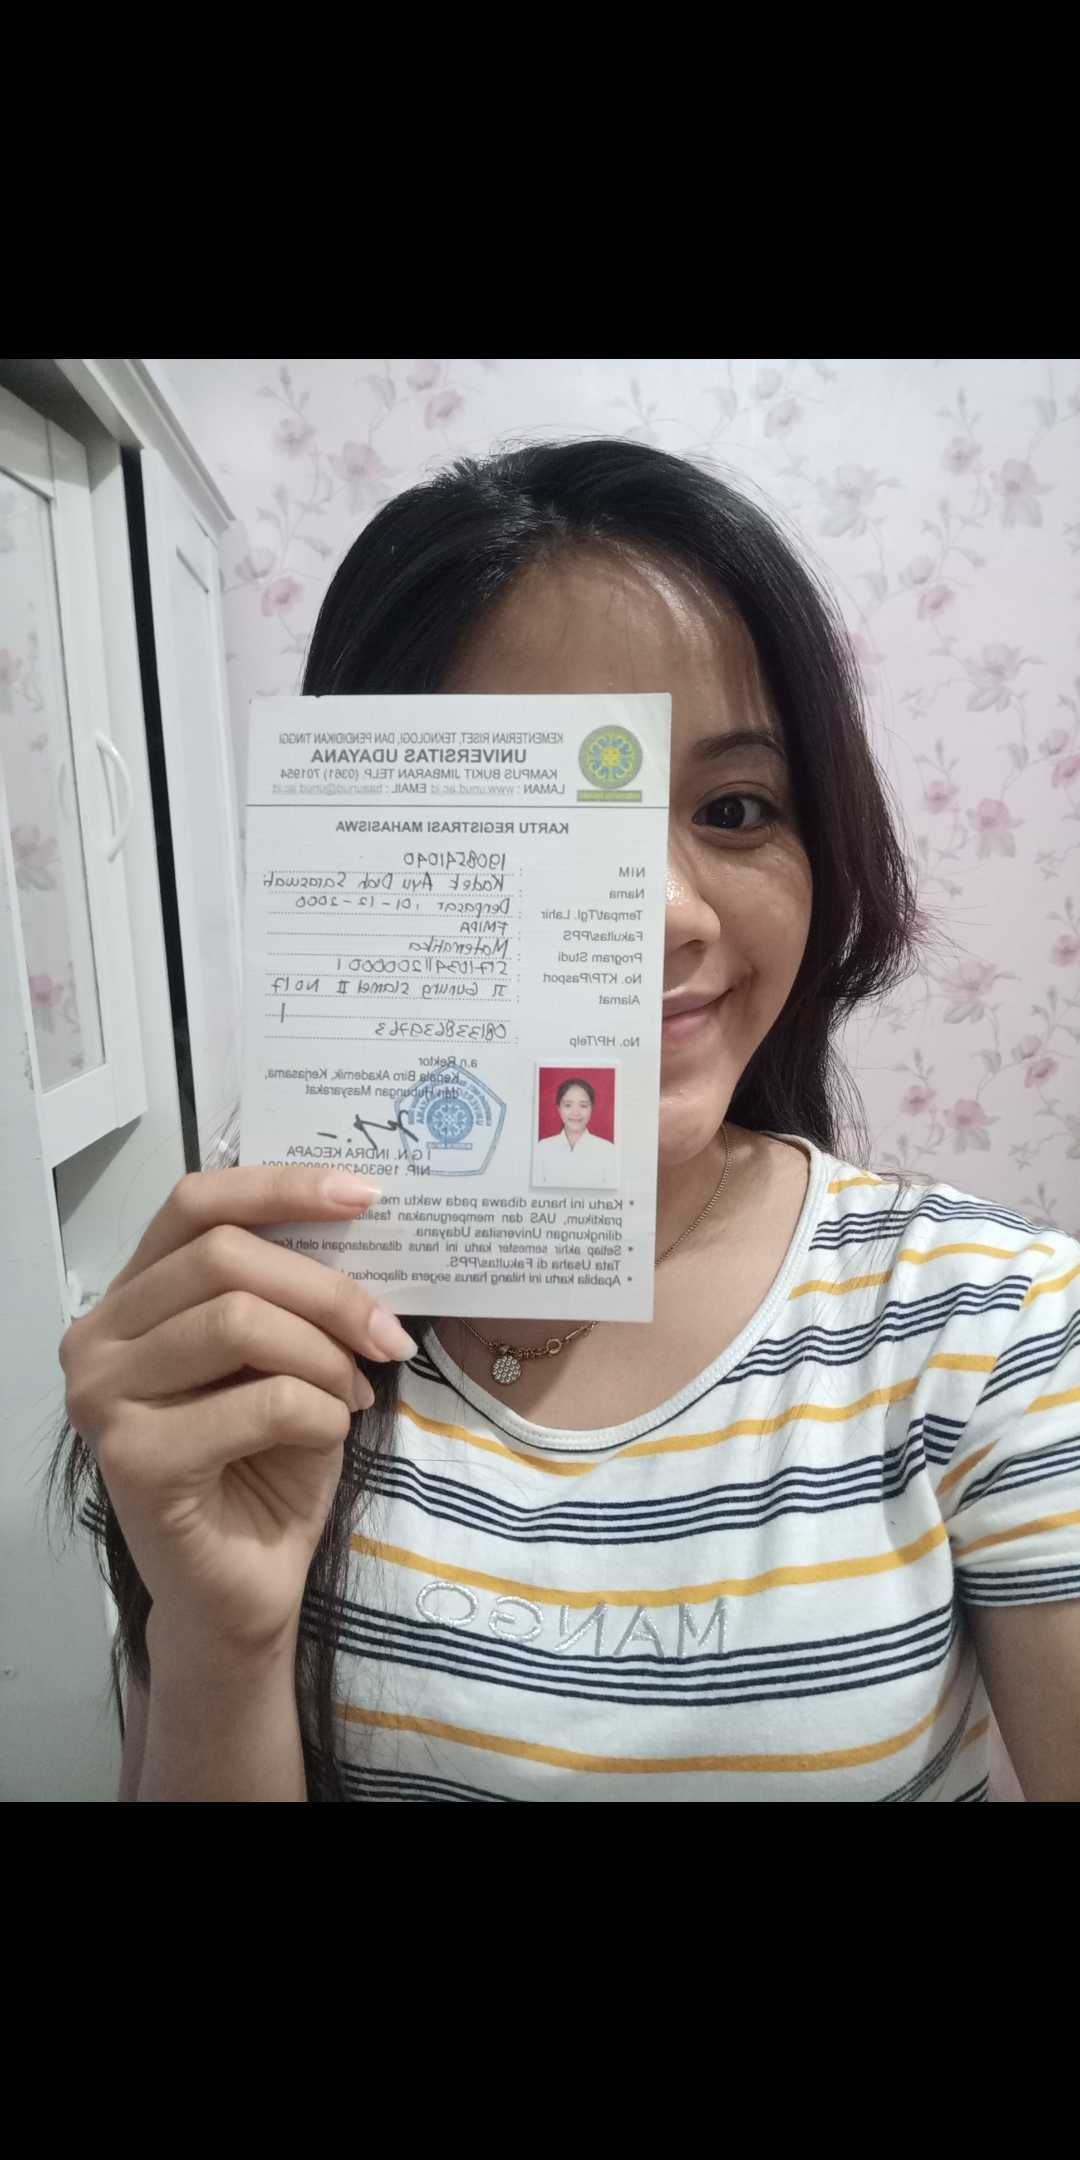 KEMENTERIAN RISET, TEKNOLOGI, DAN PENDIDIKAN TINGGI
UNIVERSITAS UDAYANA
KAMPUS BUKIT JIMBARAN TELP. (0361) 701954
LAMAN : www.unud.ac.id EMAIL : baaunud@unud.ac.id
KARTU REGISTRASI MAHASISWA
NIM : 1908541040
Nama : Kadek Ayu Diah Saraswati
Tempat/Tgl. Lahir : Denpasar , 01-12-2000
Fakultas/PPS : FMIPA
Program Studi : Matematika
No. KTP/Pasport : 5171034112000001
Alamat : Jl Gunung Slamet II No 17
No. HP/Telp : 081338639763
a.n Rektor
Kepala Biro Akademik, Kerjasama,
dan Hubungan Masyarakat
I G.N. INDRA KECAPA
NIP.
• Kartu ini harus dibawa pada waktu
praktikum, UAS dan mempergunakan
dilingkungan Universitas Udayana.
• Setiap akhir semester kartu ini harus ditandatangani oleh
Tata Usaha di Fakultas/PPS.
• Apabila kartu ini hilang harus segera dilaporkan
MANGO